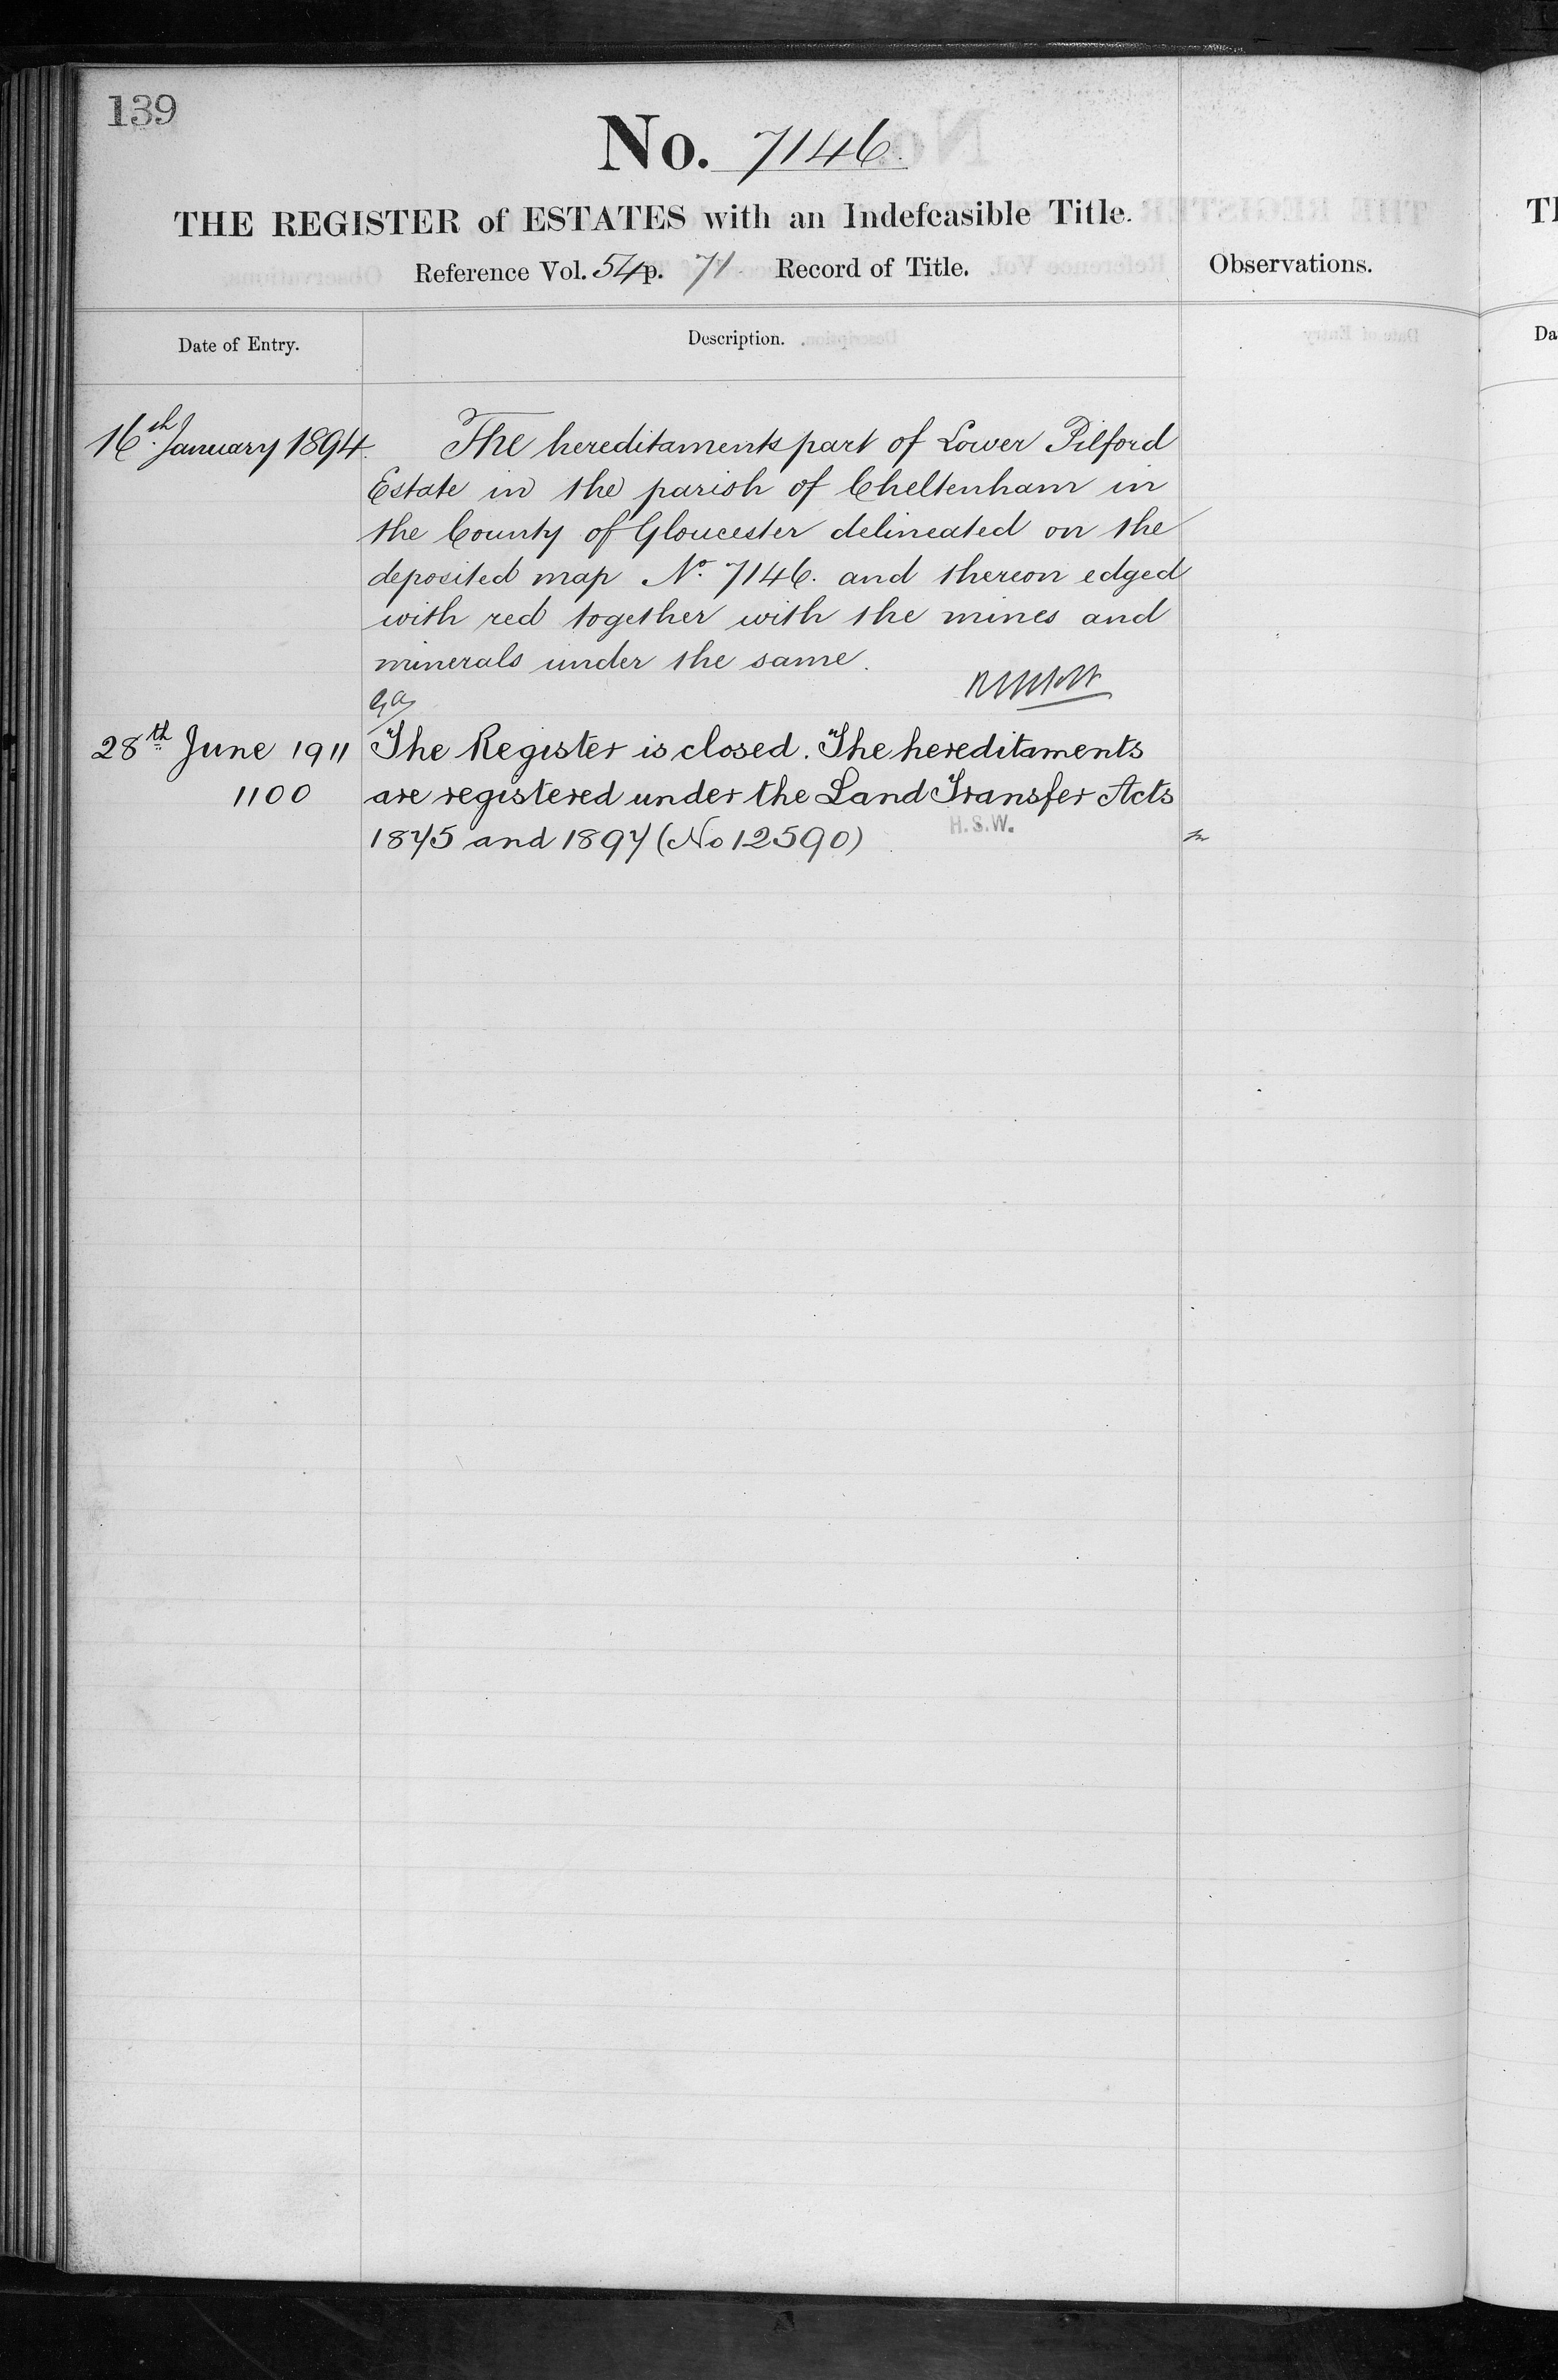 139
No. 7146.
THE REGISTER of ESTATES with an Indefeasible Title.
Reference Vol. 54 p. 71 Record of Title.
Observations.
Date of Entry.
Description.
16th January 1894.
The hereditaments part of Lower Pilford
Estate in the parish of Cheltenham in
the County of Gloucester delineated on the
deposited map No. 7146. and thereon edged
with red together with the mines and
minerals under the same.
28th June 1911
The Register is closed. The hereditaments
1100
are registered under the Land Transfer Acts
1875 and 1897 (No 12590)
H.S.W.